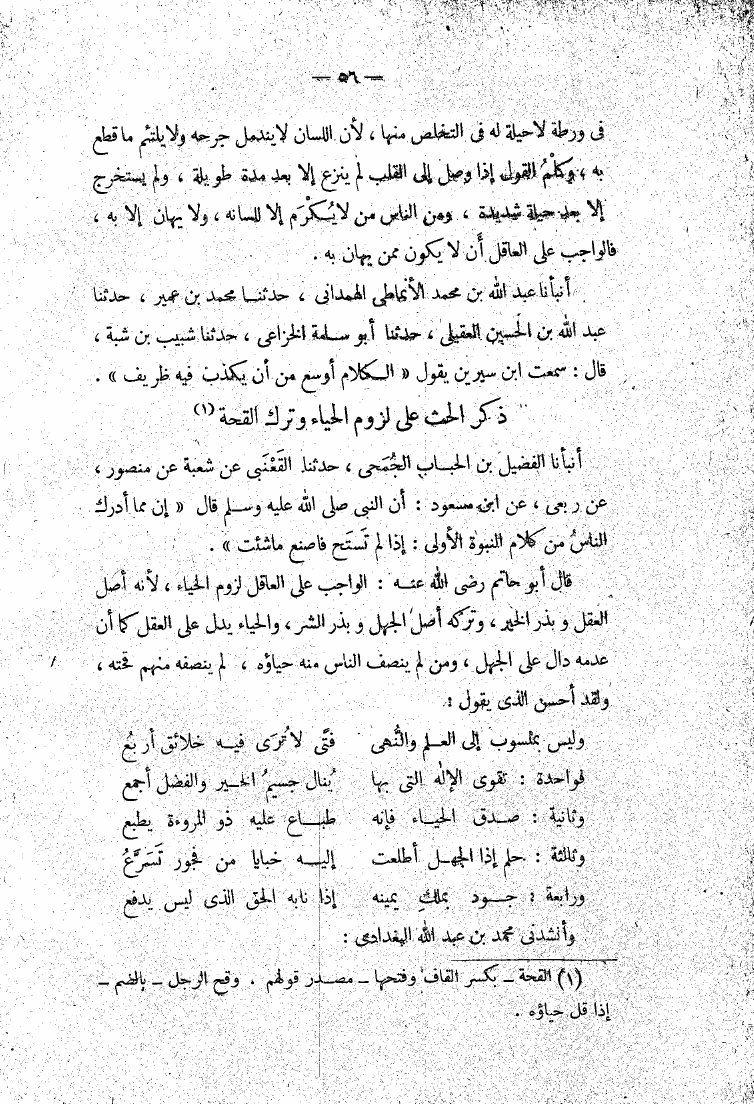 — ٥٦ —
فى ورطة لاحيلة له فى التخلص منها ، لأن اللسان لايندمل جرحه ولايلتئم ماقطع
به ، وكَلْمُ القول إذا وصل إلى القلب لم ينزع إلا بعد مدة طويلة ، ولم يستخرج
إلا بعد حيلة شديدة ، ومن الناس من لايُكْرَم إلا للسانه ، ولا يهان إلا به ،
فالواجب على العاقل أن لا يكون ممن يهان به .
أنبأنا عبد الله بن محمد الأنماطى الهمدانى ، حدثنا محمد بن عمير ، حدثنا
عبد الله بن الحسين العقيلى ، حدثنا أبو سلمة الخزاعى ، حدثنا شبيب بن شبة ،
قال : سمعت ابن سيرين يقول « الكلام أوسع من أن يكذب فيه ظريف » .
ذكر الحث على لزوم الحياء وترك القحة (١)
أنبأنا الفضيل بن الحباب الجُمَحى ، حدثنا القَعْنَبى عن شعبة عن منصور ،
عن ربعى ، عن ابن مسعود : أن النبى صلى الله عليه وسلم قال « إن مما أدرك
الناسُ من كلام النبوة الأولى : إذا لم تَستَح فاصنع ماشئت » .
قال أبو حاتم رضى الله عنه : الواجب على العاقل لزوم الحياء ، لأنه أصل
العقل وبذر الخير ، وتركه أصل الجهل وبذر الشر ، والحياء يدل على العقل كما أن
عدمه دال على الجهل ، ومن لم ينصف الناس منه حياؤه ، لم ينصفه منهم قحته ،
ولقد أحسن الذى يقول :
وليس بمنسوب إلى العلم والنُّهى فتًى لاتُرَى فيه خلائق أربُع
فواحدة : تقوى الإله التى بها يُنال جسيمُ الخير والفضل أجمع
وثانية : صدق الحياء فإنه طباع عليه ذو المروءة يطبع
وثالثة : حلم إذا الجهل أطلعت إليه خبايا من فجور تَسَرَّعُ
ورابعة : جود بملك يمينه إذا نابه الحق الذى ليس يدفع
وأنشدنى محمد بن عبد الله البغدادى :
(١) القحة – بكسر القاف وفتحها – مصدر قولهم . وقح الرجل – بالضم –
إذا قل حياؤه .